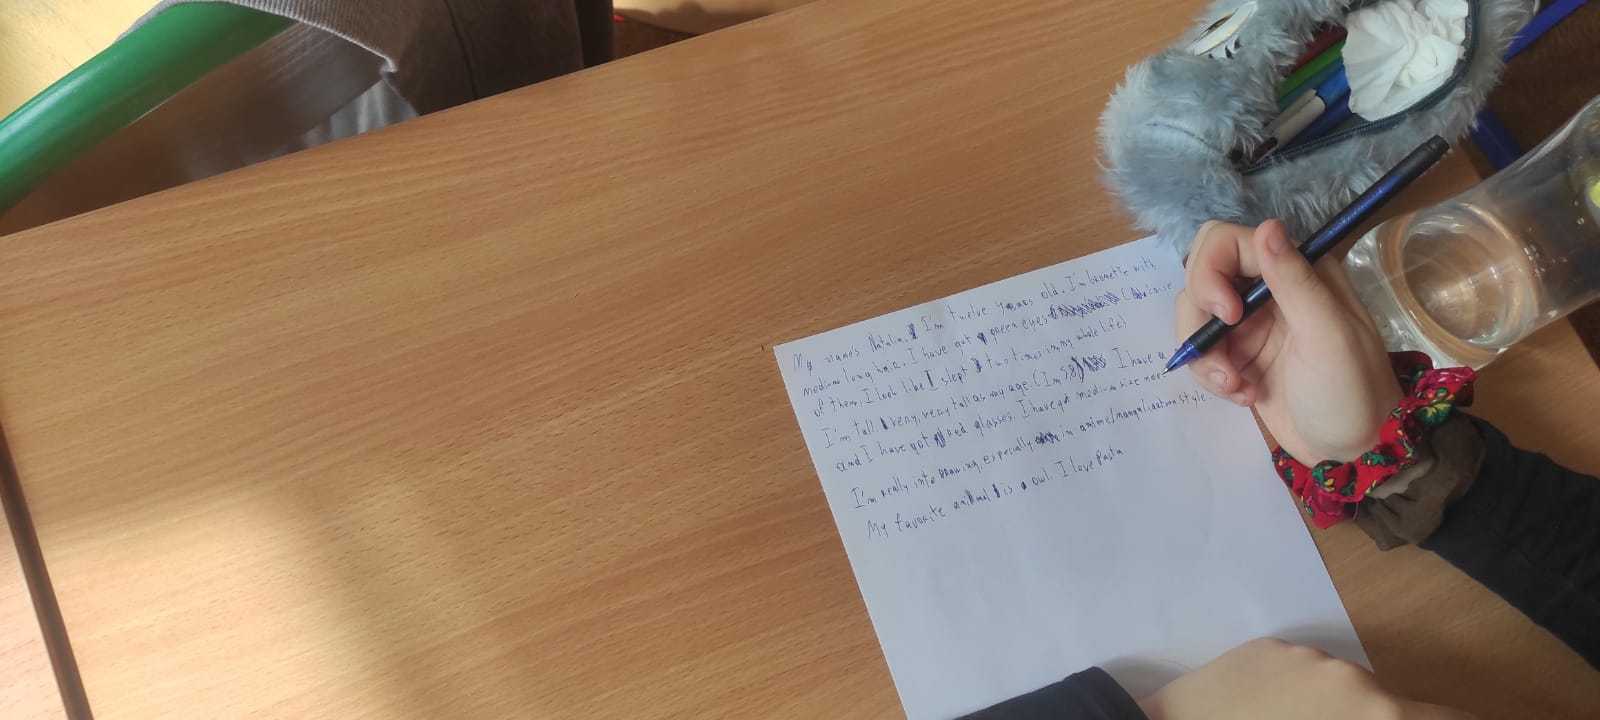 My names Natalia. I'm twelve years old. I'm brunette with
medium long hair. I have got green eyes (becouse
of them, I look like I slept two times in my whole life)
I'm tall, very, very tall as my age (I'm 58) I have a
and I have got red glasses. I have got medium size
I'm really into drawing, especially in anime/manga/cartoon style
My favorite animal is owl. I love Pasta